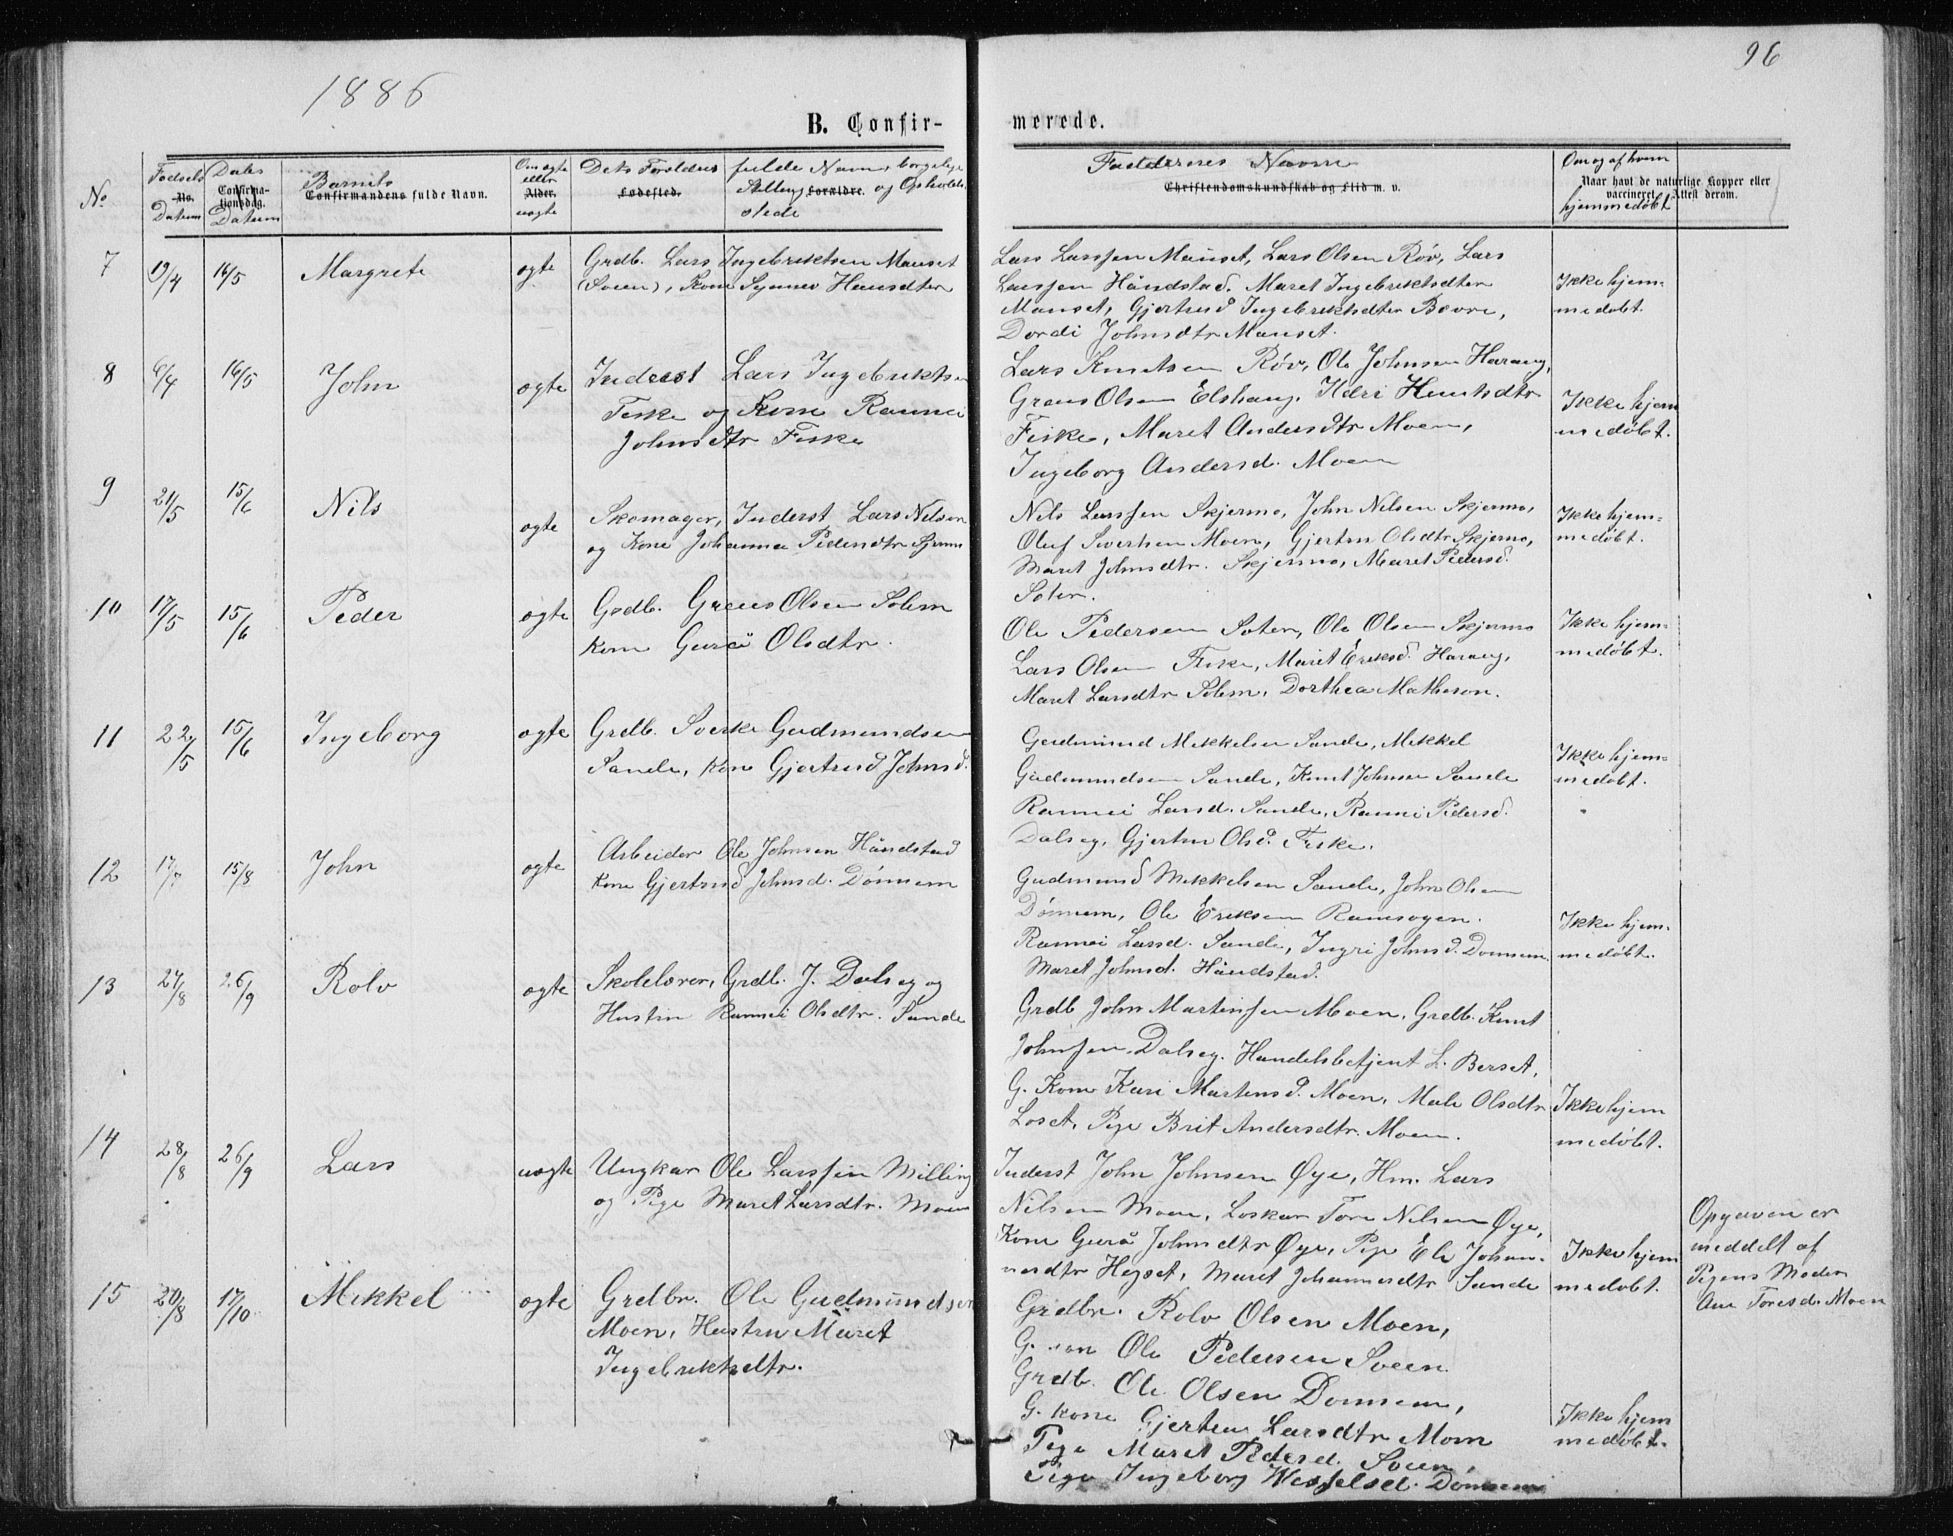 1886
96
B. Confir-
merede.
No
Fødsels
No.
Datum
Daabs
Confirma-
tionsdag.
Datum
Barnets
Confirmandens fulde Navn.
Om ægte
eller
Alder.
uægte
Dets Forældres fulde Navn, borgelige
Fødested. Stilling Forældre. og Opholds-
stede
Faddernes Navne
Christendomskundskab og Flid m. v.
Om og af hvem
Naar havt de naturlige Kopper eller
vaccineret. Attest derom.
hjemmedøbt
7 19/4 16/5 Margrete ægte Grdb. Lars Ingebriktsen Mauset
(Soeen), Kone Synnev Hansdter
Lars Larssen Mauset, Lars Olsen Røv, Lars
Larssen Håndstad. Maret Ingebriktsdter
Mauset, Gjertrud Ingebriktsdter Bævre,
Dordi Johnsdtr Mauset.
Ikke hjem-
medøbt.
8 6/4 16/5 John ægte Inderst Lars Ingebriktsen
Feske og Kone Rannei
Johnsdtr Feske
Lars Knutsen Røv, Ole Johnsen Harang,
Graus Olsen Elshaug, Ildri Knutsdtr
Fiske, Maret Andersdtr Moen,
Ingeborg Andersd. Moen
Ikke hjem
medøbt.
9 21/5 15/6 Nils ægte Skomager, Inderst Lars Nilsen
og Kone Johanna Pedersdtr Skjermo
Nils Larssen Skjermo, John Nilsen Skjermo,
Oluf Sivertsen Moen, Gjertru Olsdtr Skjermo,
Maret Johnsdtr. Skjermo, Maret Pedersd.
Soter.
Ikke hjem-
medøbt.
10 17/5 15/6 Peder ægte Grdb. Graus Olsen Solem
Kone Guråi Olsdtr.
Ole Pedersen Soter, Ole Olsen Skjermo
Lars Olsen Fiske, Maret Eriksd. Harang,
Maret Larsdtr Solem, Dorthea Matheson.
Ikke hjem-
medøbt.
11 22/5 15/6 Ingeborg ægte Grdb. Sverke Gudmundsen
Sande, Kone Gjertrud Johnsd.
Gudmund Mikkelsen Sande, Mikkel
Gudmundsen Sande, Knut Johnsen Sande
Rannei Larsd. Sande, Rannei Pedersd.
Dalseg, Gjertru Olsd. Fiske.
Ikke hjem-
medøbt.
12 17/7 15/8 John ægte Arbeider Ole Johnsen Håndstad
Kone Gjertrud Johnsd. Dønnem
Gudmund Mikkelsen Sande, John Olsen
Dønnem, Ole Eriksen Ramsøgen.
Rannei Larsd. Sande, Ingri Johnsd. Donnem
Maret Johnsd. Håndstad.
Ikke hjem-
medøbt.
13 24/8 26/9 Rolv ægte Skolelærer, Grdb. J. Dalseg og
Hustru Rannei Olsdtr. Sande
Grdb John Martinssen Moen, Grdb. Knut
Johnssen Dalseg. Handelsbetjent L. Berset,
G. Kone Kari Martensd. Moen, Mali Olsdtr
Loset, Pige Brit Andersdtr. Moen.
Ikke hjem
medøbt.
14 28/8 26/9 Lars uægte Ungkar Ole Larssen Milling
og Pige Maret Larsdtr. Moen
Inderst John Johnsen Øye, Hm. Lars
Nilsen Moen, Løskar Tore Nilsen Øye,
Kone Gurå Johnsdtr Øye, Pige Eli Johan-
nesdtr Hegset, Maret Johannesdtr Sande
Ikke hjem
medøbt.
Opgaven er
meddelt af
Pigens Moder
Ane Toresd. Moen
15 20/8 17/10 Mikkel ægte Grdbr. Ole Gudmundsen
Moen, Hustru Maret
Ingebriktsdtr.
Grdbr. Rolv Olsen Moen,
G. Ole Pedersen Soeen
Grdb. Ole Olsen Donnem,
G. Kone Gjertru Larsdtr Moen
Pige Maret Pedersd. Soeen,
Pige Ingeborg Wesselsd. Dønnem
Ikke hjem
medøbt.